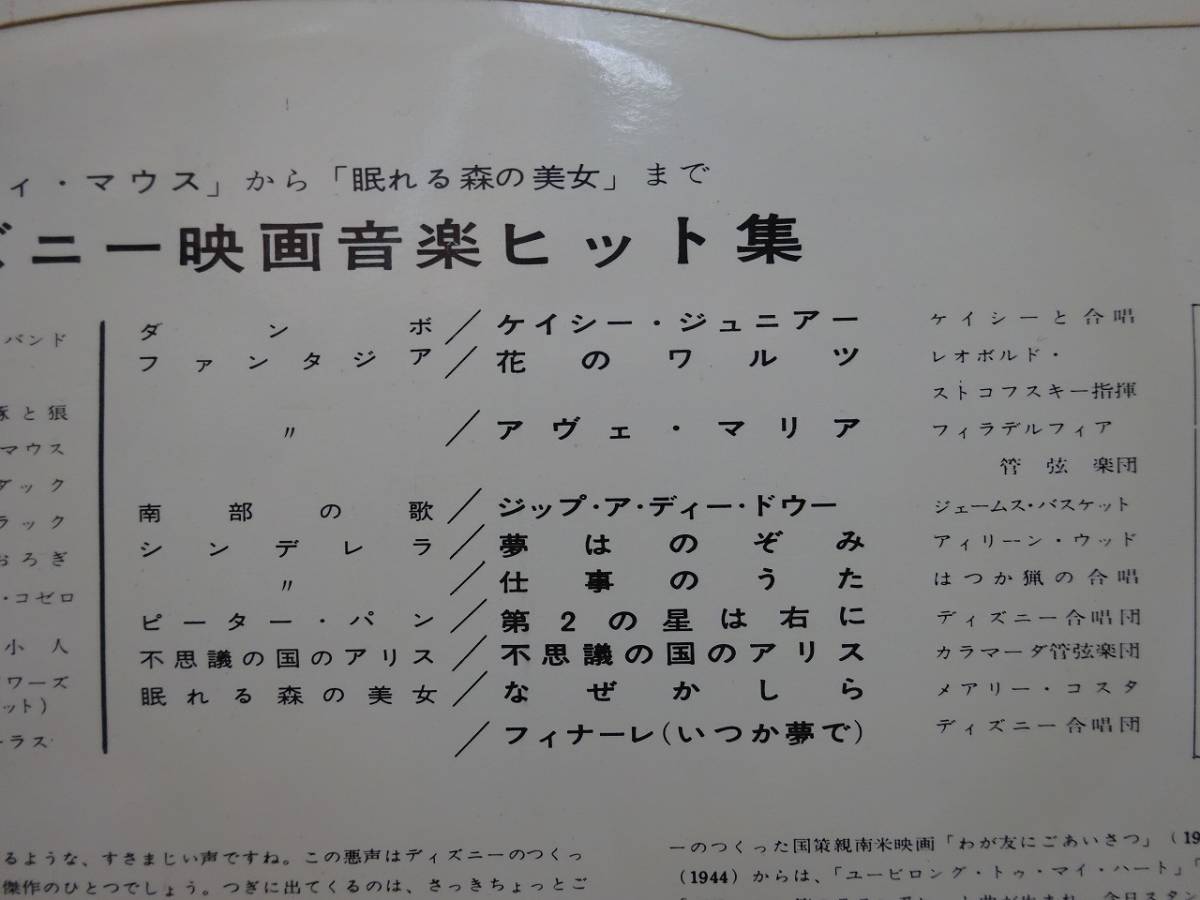 ィ・マウス」から「眠れる森の美女」まで
ズニー映画音楽ヒット集
バンド
豚と狼
マウス
ダック
ラック
おろぎ
・コゼロ
小人
ワーズ
ット)
ーラス
ダンボ／ケイシー・ジュニアー　ケイシーと合唱
ファンタジア／花のワルツ　レオボルド・
ストコフスキー指揮
〃／アヴェ・マリア　フィラデルフィア
管弦楽団
南部の歌／ジップ・ア・ディー・ドウー　ジェームス・バスケット
シンデレラ／夢はのぞみ　アィリーン・ウッド
〃／仕事のうた　はつか猟の合唱
ピーター・パン／第2の星は右に　ディズニー合唱団
不思議の国のアリス／不思議の国のアリス　カラマーダ管弦楽団
眠れる森の美女／なぜかしら　メアリー・コスタ
／フィナーレ(いつか夢で)　ディズニー合唱団
るような、すさまじい声ですね。この悪声はディズニーのつくっ
傑作のひとつでしょう。つぎに出てくるのは、さっきちょっとご
ーのつくった国策親南米映画「わが友にごあいさつ」(19
(1944)からは、「ユービロング・トゥ・マイ・ハート」「